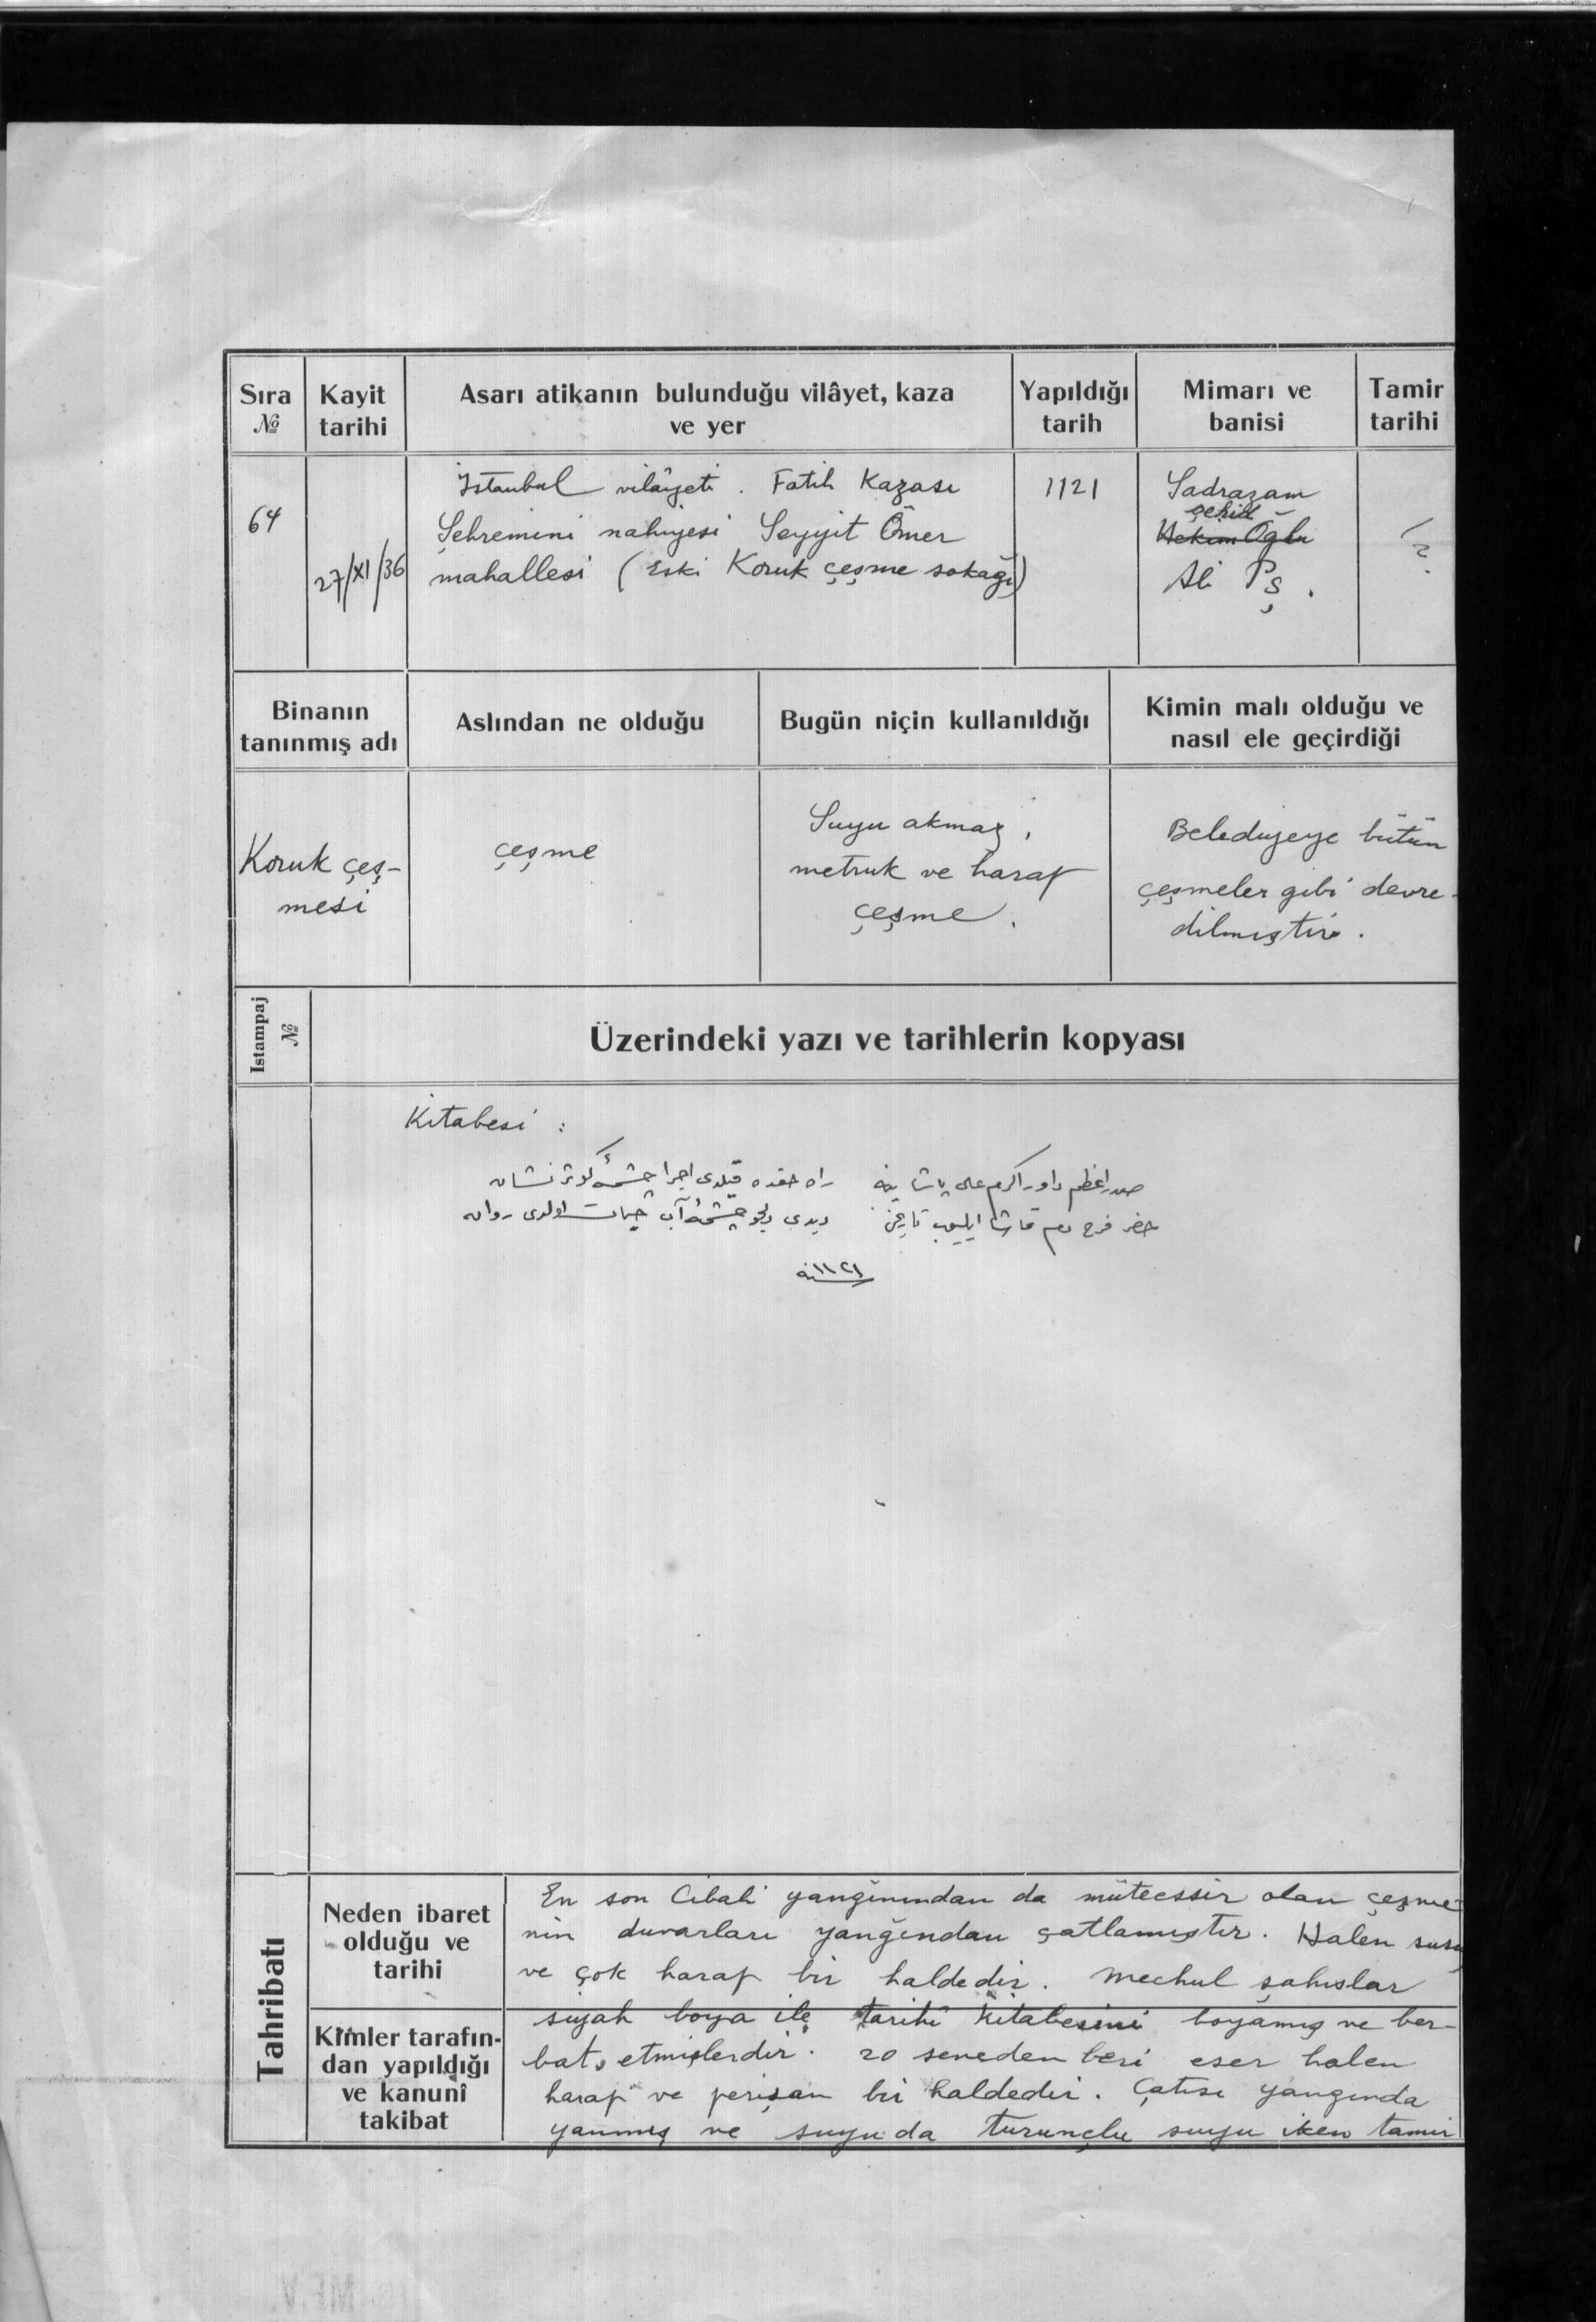 Sıra
№
Kayit
tarihi
Asarı atikanın bulunduğu vilâyet, kaza
ve yer
Yapıldığı
tarih
Mimarı ve
banisi
Tamir
tarihi
64
27/XI/36
İstanbul vilâyeti. Fatih Kazası
Şehremini nahiyesi Seyyit Ömer
mahallesi (Eski Koruk çeşme sokağı)
1121
Sadrazam
şehid
Hekim Oğlu
Ali Pş.
?
Binanın
tanınmış adı
Aslından ne olduğu
Bugün niçin kullanıldığı
Kimin malı olduğu ve
nasıl ele geçirdiği
Koruk çeş-
mesi
çeşme
Suyu akmaz,
metruk ve harap
çeşme.
Belediyeye bütün
çeşmeler gibi devre-
dilmiştir.
Istampaj
№
Üzerindeki yazı ve tarihlerin kopyası
Kitabesi :
صدر اعظم داور اكرم على پاشا راه حقده قيلدى اجرا چشمهٔ كوثر نشان
خضر فرخ ايليوب تاريخن ديدى دلجو چشمهٔ آب حيات اولدى روان
سنه ١١٢١
Tahribatı
Neden ibaret
olduğu ve
tarihi
En son Cibali yangınından da müteessir olan çeşme
nin duvarları yangından çatlamıştır. Halen susuz
ve çok harap bir haldedir. Meçhul şahıslar
Kimler tarafın-
dan yapıldığı
ve kanunî
takibat
siyah boya ile tarihî kitabesini boyamış ve ber-
bat etmişlerdir. 20 seneden beri eser halen
harap ve perişan bir haldedir. Çatısı yangında
yanmış ve suyu da turunçlu suyu iken tamir